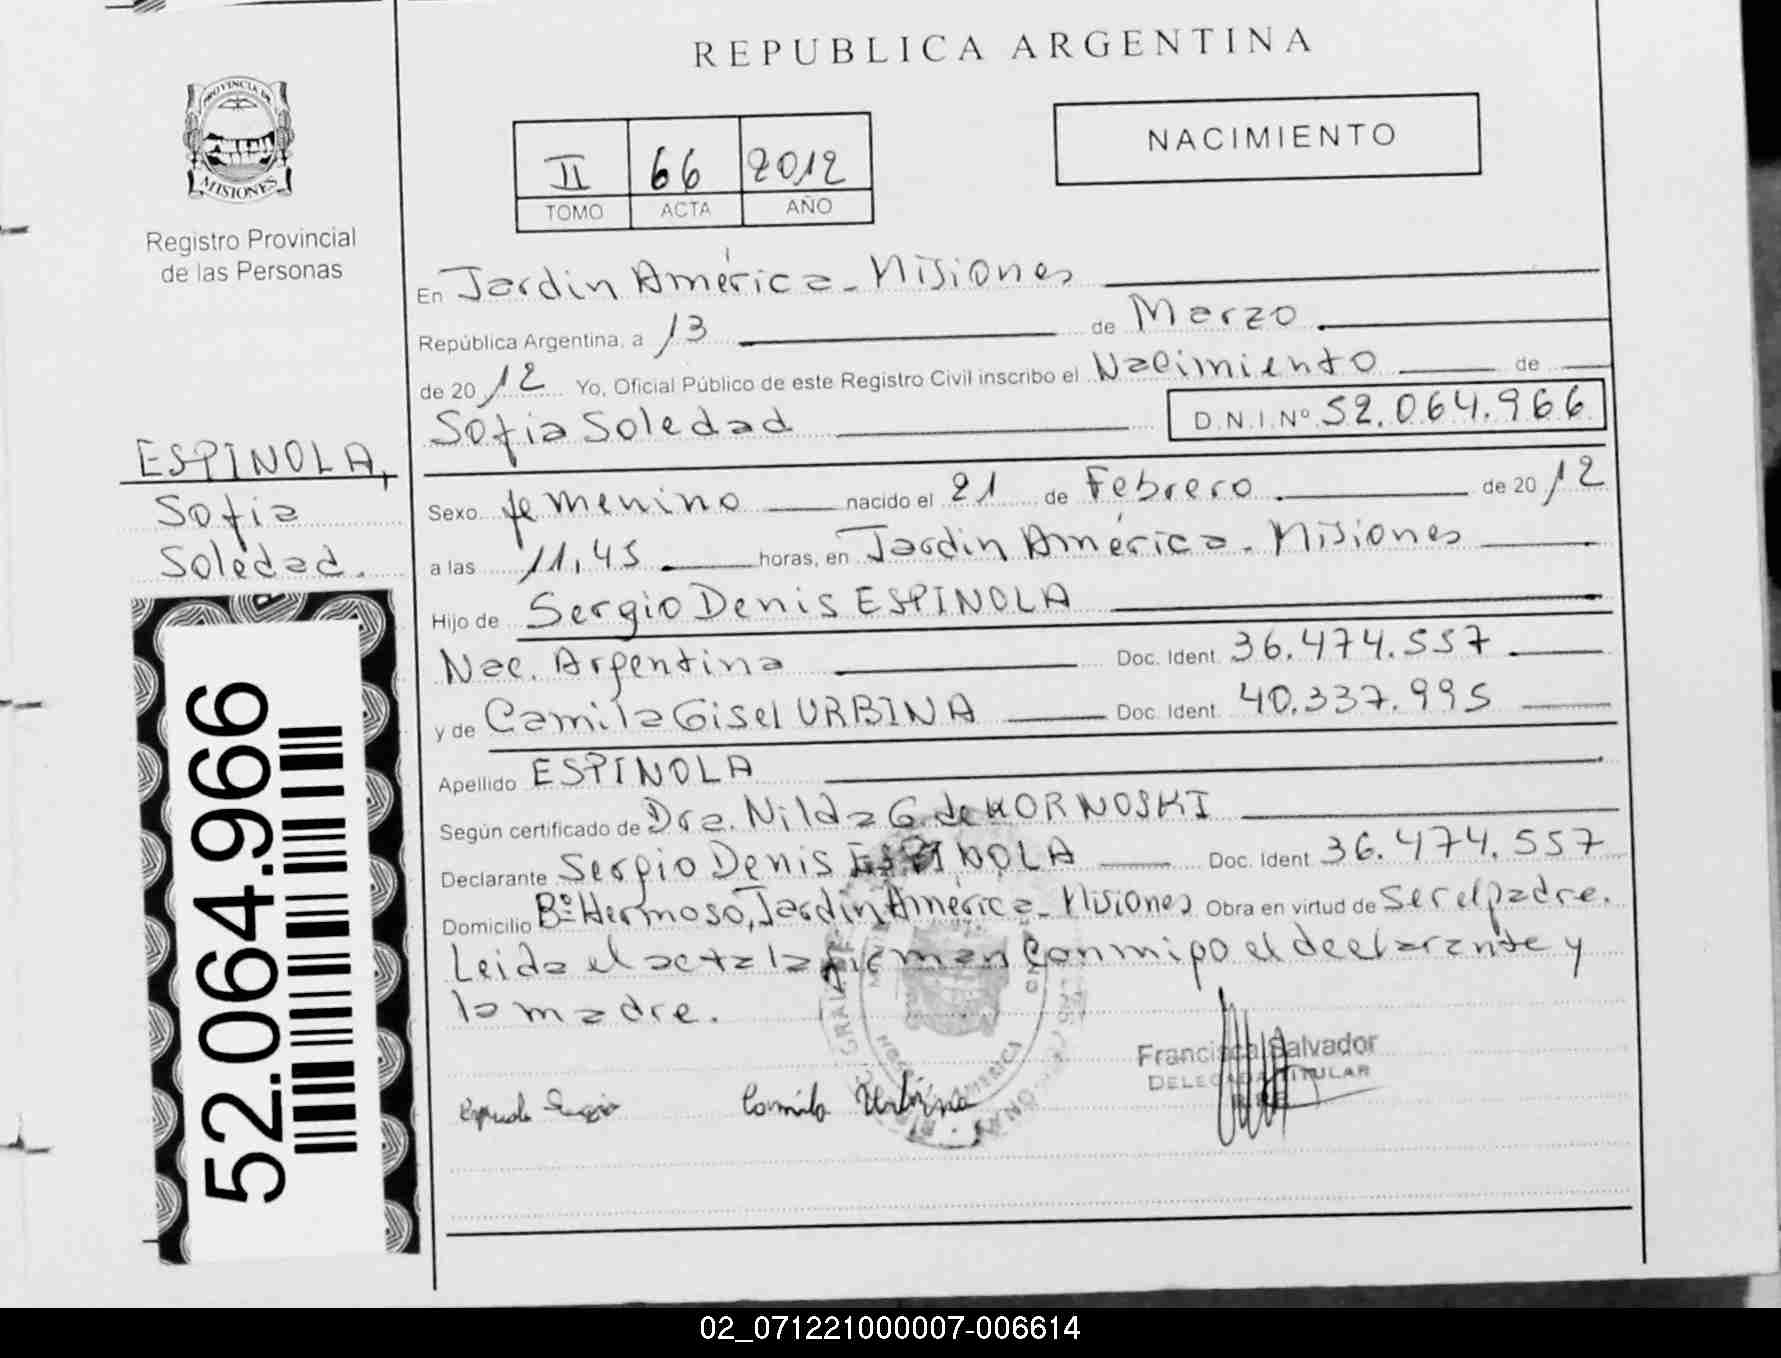 REPUBLICA ARGENTINA
PROVINCIA DE
MISIONES
Registro Provincial
de las Personas
II 66 2012
TOMO ACTA AÑO
NACIMIENTO
En Jardin América - Misiones
República Argentina, a 13 de Marzo
de 2012 Yo, Oficial Público de este Registro Civil inscribo el Nacimiento de
Sofia Soledad D.N.I.Nº 52.064.966
ESPINOLA,
Sofia
Soledad.
Sexo femenino nacido el 21 de Febrero de 2012
a las 11,45 horas, en Jardin América - Misiones
Hijo de Sergio Denis ESPINOLA
Nac. Argentina Doc. Ident. 36.474.557
y de Camila Gisel URBINA Doc. Ident. 40.337.995
Apellido ESPINOLA
Según certificado de Dra. Nilda G. de KORNOSKI
Declarante Sergio Denis ESPINOLA Doc. Ident. 36.474.557
Domicilio Bº Hermoso, Jardin América - Misiones Obra en virtud de Ser el padre.
Leida el acta la firman conmigo el declarante y
la madre.
Francisca Salvador
DELEGADA TITULAR
Camila Urbina
52.064.966
02_071221000007-006614